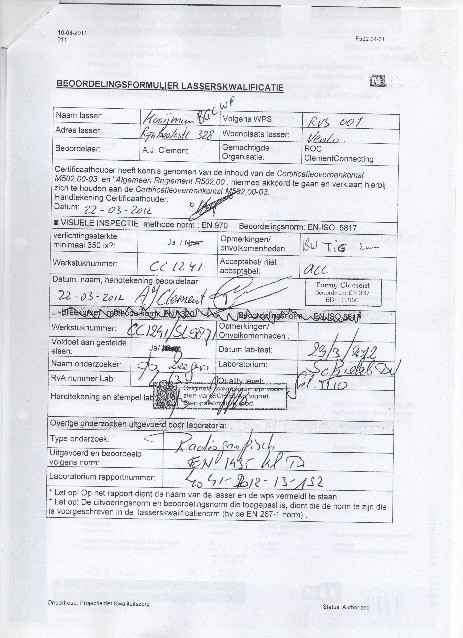 10-08-2011
011
F502.04-01
BEOORDELINGSFORMULIER LASSERSKWALIFICATIE
Naam lasser: Kooijman BGC WP Volgens WPS RVS 001
Adres lasser: 328 Woonplaats lasser: Venlo
Beoordelaar: A.J. Clement Gemachtigde Organisatie: ROC ClementConnecting
Certificaathouder heeft kennis genomen van de inhoud van de Certificatieovereenkomst
M502.00-03 en "Algemeen Reglement R502.00", hiermee akkoord te gaan en verklaart hierbij
zich te houden aan de Certificatieovereenkomst M502.00-03.
Handtekening Certificaathouder:
Datum: 22-03-2012
VISUELE INSPECTIE methode norm : EN 970 Beoordelingsnorm: EN-ISO 5817
verlichtingsterkte minimaal 350 lx?: Ja / Nee Opmerkingen/ onvolkomenheden BW TIG
Werkstuknummer: CC1241 Acceptabel/ niet acceptabel: acc
Datum, naam, handtekening beoordelaar
22-03-2012 AJ Clement
Werkstuknummer: CC1241/SL987 Opmerkingen/ Onvolkomenheden :
Voldoet aan gestelde eisen: Ja/ Datum lab-test: 29/3/2012
Naam onderzoeker: Laboratorium:
RvA nummer Lab: Quality level:
Handtekening en stempel lab:
Overige onderzoeken uitgevoerd door laboratoria :
Type onderzoek: Radiografisch
Uitgevoerd en beoordeeld volgens norm: EN 1435 kl
Laboratorium rapportnummer: 4041-2012-13-152
* Let op: Op het rapport dient de naam van de lasser en de wps vermeld te staan.
* Let op: De uitvoeringsnorm en beoordelingsnorm die toegepast is, dient die de norm te zijn die
is voorgeschreven in de lasserskwalificatienorm (bv de EN 287-1 norm) .
Onderhoud: Projectleider Kwaliteitszorg
Status: Authorized